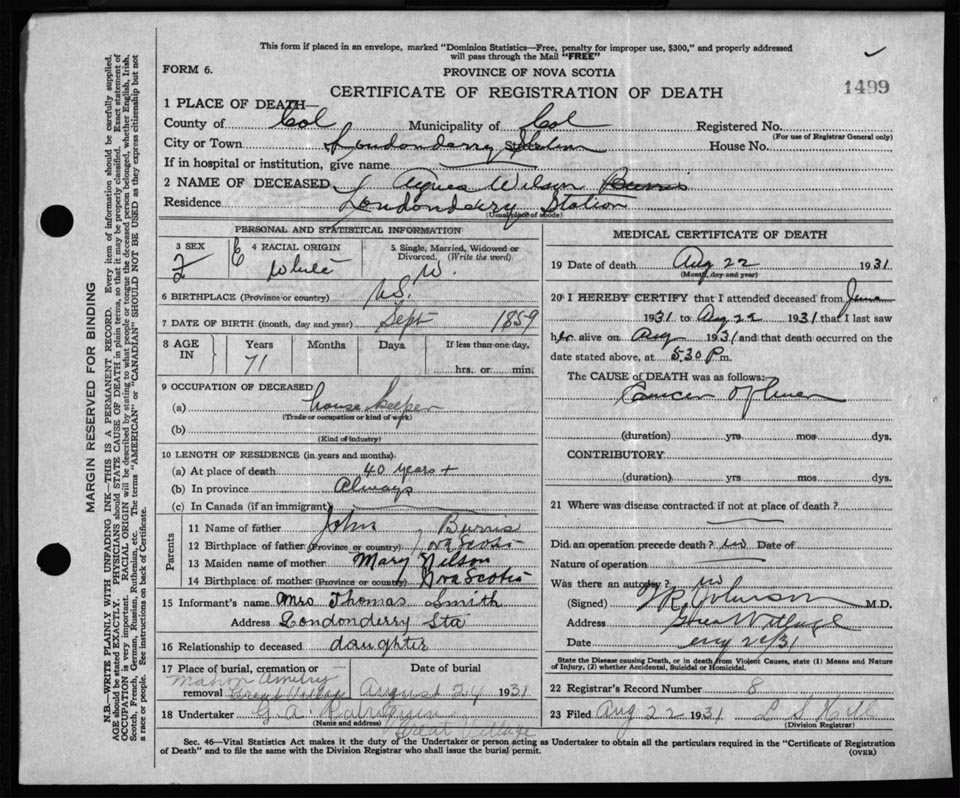 This form if placed in an envelope, marked "Dominion Statistics—Free, penalty for improper use, $300," and properly addressed
will pass through the Mail "FREE"
FORM 6.
PROVINCE OF NOVA SCOTIA
CERTIFICATE OF REGISTRATION OF DEATH
1499
1 PLACE OF DEATH—
County of Col Municipality of Col Registered No.
(For use of Registrar General only)
City or Town Londonderry Station Street House No.
If in hospital or institution, give name
2 NAME OF DECEASED Agnes Wilson Burris
Residence Londonderry Station
(Usual place of abode)
PERSONAL AND STATISTICAL INFORMATION
3 SEX F
4 RACIAL ORIGIN E White
5 Single, Married, Widowed or Divorced. (Write the word) W.
6 BIRTHPLACE (Province or country) N.S.
7 DATE OF BIRTH (month, day and year) Sept 1859
8 AGE IN Years 71 Months Days If less than one day, hrs. or min.
9 OCCUPATION OF DECEASED
(a) house keeper
(Trade or occupation or kind of work)
(b)
(Kind of industry)
10 LENGTH OF RESIDENCE (in years and months)
(a) At place of death 40 years +
(b) In province Always
(c) In Canada (if an immigrant)
Parents
11 Name of father John Burris
12 Birthplace of father (Province or country) Nova Scotia
13 Maiden name of mother Mary
14 Birthplace of mother (Province or country) Nova Scotia
15 Informant's name Mrs Thomas Smith
Address Londonderry Sta
16 Relationship to deceased daughter
17 Place of burial, cremation or removal Great Village
Date of burial August 24 1931
18 Undertaker G. A.
(Name and address) Great Village
MEDICAL CERTIFICATE OF DEATH
19 Date of death Aug 22 1931
(Month, day and year)
20 I HEREBY CERTIFY that I attended deceased from June
1931 to Aug 22 1931 that I last saw
her alive on Aug 1931 and that death occurred on the
date stated above, at 5.30 P m.
The CAUSE of DEATH was as follows:
Cancer of liver
(duration) yrs mos dys.
CONTRIBUTORY
(duration) yrs mos dys.
21 Where was disease contracted if not at place of death?
Did an operation precede death? no Date of
Nature of operation
Was there an autopsy? no
(Signed) Johnson M.D.
Address Great Village
Date Aug 31
State the Disease causing Death, or in death from Violent Causes, state (1) Means and Nature
of Injury, (2) whether Accidental, Suicidal or Homicidal.
22 Registrar's Record Number 8
23 Filed Aug 22 1931 L S Hill
(Division Registrar)
Sec. 46—Vital Statistics Act makes it the duty of the Undertaker or person acting as Undertaker to obtain all the particulars required in the "Certificate of Registration
of Death" and to file the same with the Division Registrar who shall issue the burial permit.
(OVER)
MARGIN RESERVED FOR BINDING
N.B.—WRITE PLAINLY WITH UNFADING INK—THIS IS A PERMANENT RECORD. Every item of information should be carefully supplied.
AGE should be stated EXACTLY. PHYSICIANS should STATE CAUSE OF DEATH in plain terms, so that it may be properly classified. Exact statement of
OCCUPATION is very important. RACIAL ORIGIN will be described by stating to what people or tongue the deceased person belonged, whether English, Irish,
Scotch, French, German, Russian, Ruthenian, etc. The terms "AMERICAN" or "CANADIAN" SHOULD NOT BE USED as they express citizenship but not
a race or people. See instructions on back of Certificate.